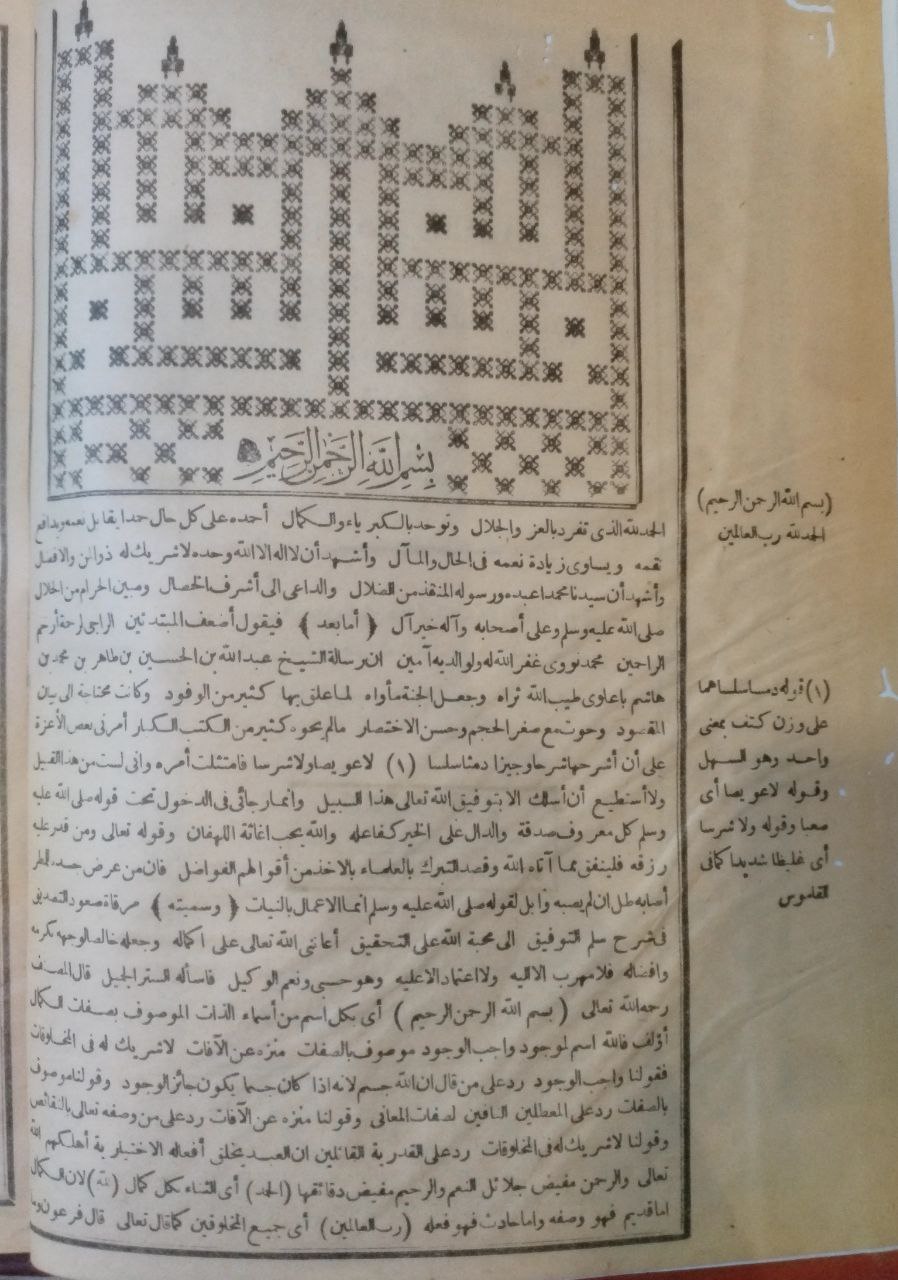 بسم الله الرحمن الرحيم
الحمد لله الذى تفرد بالعز والجلال وتوحد بالكبرياء والكمال أحمده على كل حال حمدا يقابل نعمه ويدافع
نقمه ويساوى زيادة نعمه فى الحال والمآل وأشهد أن لا اله الا الله وحده لا شريك له ذو المن والافضل
وأشهد أن سيدنا محمدا عبده ورسوله المنقذ من الضلال والداعى الى أشرف الخصال ومبين الحرام من الحلال
صلى الله عليه وسلم وعلى أصحابه وآله خير آل ﴿ أما بعد ﴾ فيقول أضعف المبتدئين الراجى لرحة أرحم
الراحمين محمد نووى غفر الله له ولوالديه آمين ان رسالة الشيخ عبد الله بن الحسين بن طاهر بن محمد بن
هاشم باعلوى طيب الله ثراه وجعل الجنة مأواه لما علق بها كثير من الوفود وكانت محتاجة الى بيان
المقصود وحوت مع صغر الحجم وحسن الاختصار ما لم يحوه كثير من الكتب الكبار أمرنى بعص الأعزة
على أن أشرحها شرحا وجيزا دمثا سلسا (١) لا عويصا ولا شرسا فامتثلت أمره وانى لست من هذا القبيل
ولا أستطيع أن أسلك الا بتوفيق الله تعالى هذا السبيل وانما رجائى فى الدخول تحت قوله صلى الله عليه
وسلم كل معروف صدقة والدال على الخير كفاعله والله يحب اغاثة اللهفان وقوله تعالى ومن قدر عليه
رزقه فلينفق مما آتاه الله وقصد التبرك بالعلماء بالاخذ من أقوالهم الفواضل فان من عرض جسده للمطر
أصابه طل ان لم يصبه وابل لقوله صلى الله عليه وسلم انما الاعمال بالنيات ﴿ وسميته ﴾ مرقاة صعود التصديق
فى شرح سلم التوفيق الى محبة الله على التحقيق أعاننى الله تعالى على اكماله وجعله خالصا لوجهه بكرمه
وافضاله فلا مهرب الا اليه ولا اعتماد الا عليه وهو حسبى ونعم الوكيل فاسأله الستر الجميل قال المصنف
رحمه الله تعالى ( بسم الله الرحمن الرحيم ) أى بكل اسم من أسماء الذات الموصوف بصفات الكمال
أؤلف فالله اسم لموجود واجب الوجود موصوف بالصفات منزه عن الآفات لا شريك له فى المخلوقات
فقولنا واجب الوجود رد على من قال ان الله جسم لانه اذا كان جسما يكون جائز الوجود وقولنا موصوف
بالصفات رد على المعطلين النافين لصفات المعانى وقولنا منزه عن الآفات رد على من وصفه تعالى بالنقائص
وقولنا لا شريك له فى المخلوقات رد على القدرية القائلين ان العبد يخلق أفعاله الاختيارية أهلكهم الله
تعالى والرحمن مفيض جلائل النعم والرحيم مفيض دقائقها (الحمد) أى الثناء بكل كمال (لله) لان الكمال
اما قديم فهو وصفه واما حادث فهو فعله (رب العالمين) أى جميع المخلوقين كما قال تعالى قال فرعون وما
(بسم الله الرحمن الرحيم)
الحمد لله رب العالمين
(١) قوله دمثا سلسا هما
على وزن كتف بمعنى
واحد وهو السهل
وقوله لا عويصا أى
صعبا وقوله ولا شرسا
أى غليظا شديدا كما فى
القاموس